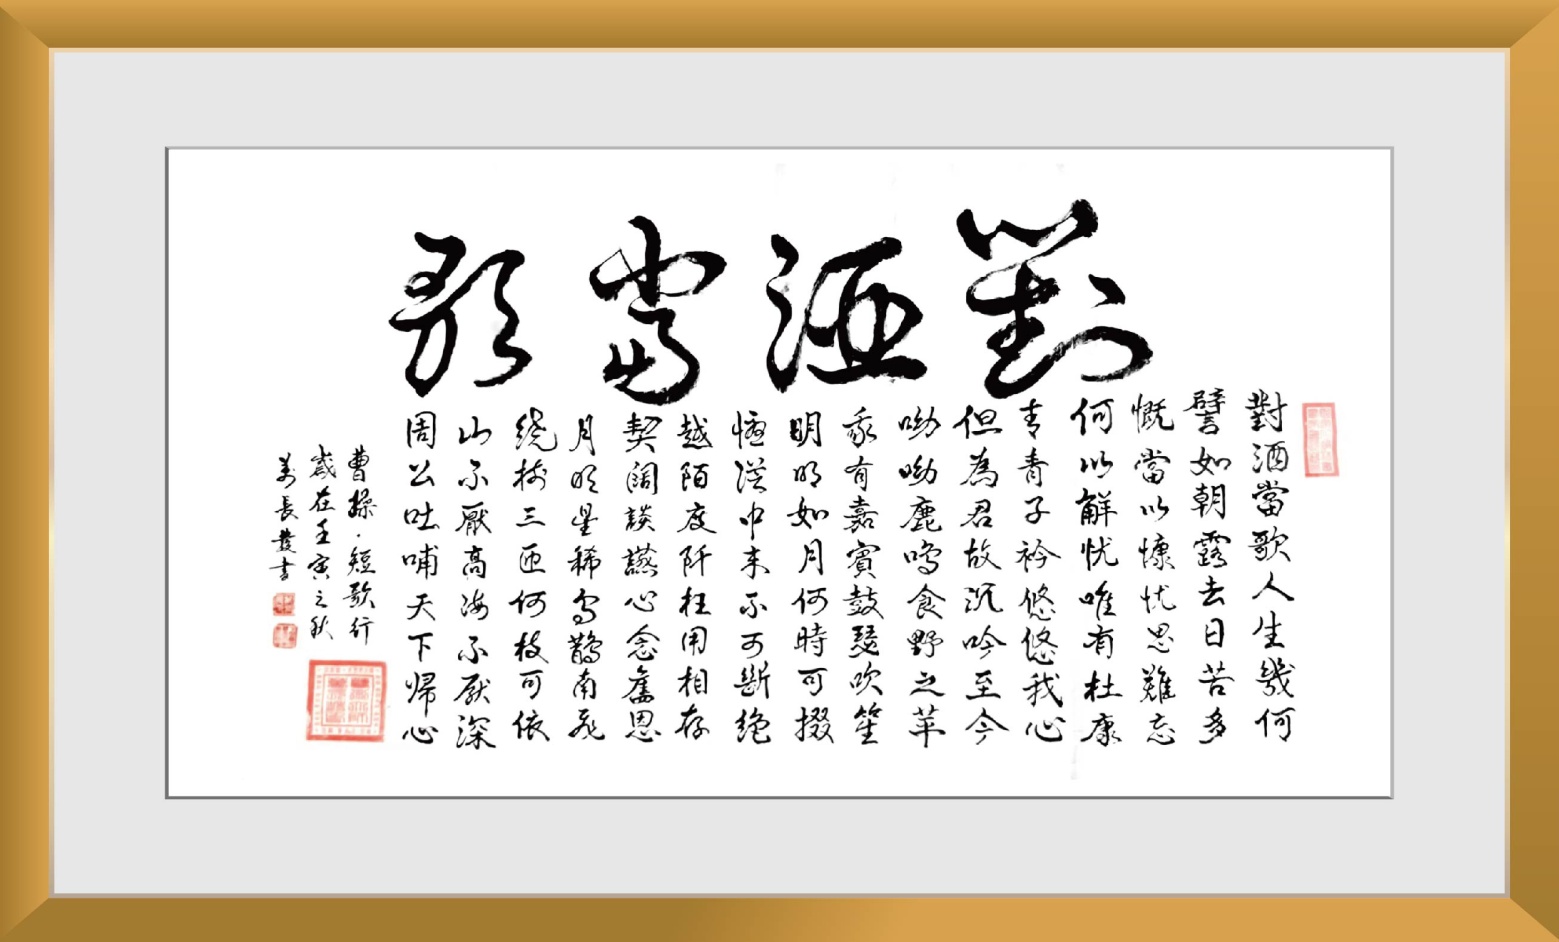 對酒當歌
對酒當歌人生幾何
譬如朝露去日苦多
慨當以慷忧思難忘
何以解忧唯有杜康
青青子衿悠悠我心
但為君故沉吟至今
呦呦鹿鸣食野之苹
我有嘉賓鼓瑟吹笙
明明如月何時可掇
憂從中来不可斷绝
越陌度阡枉用相存
契阔談讌心念舊恩
月明星稀烏鵲南飛
绕树三匝何枝可依
山不厭高海不厭深
周公吐哺天下歸心
曹操·短歌行
歲在壬寅之秋
長發書